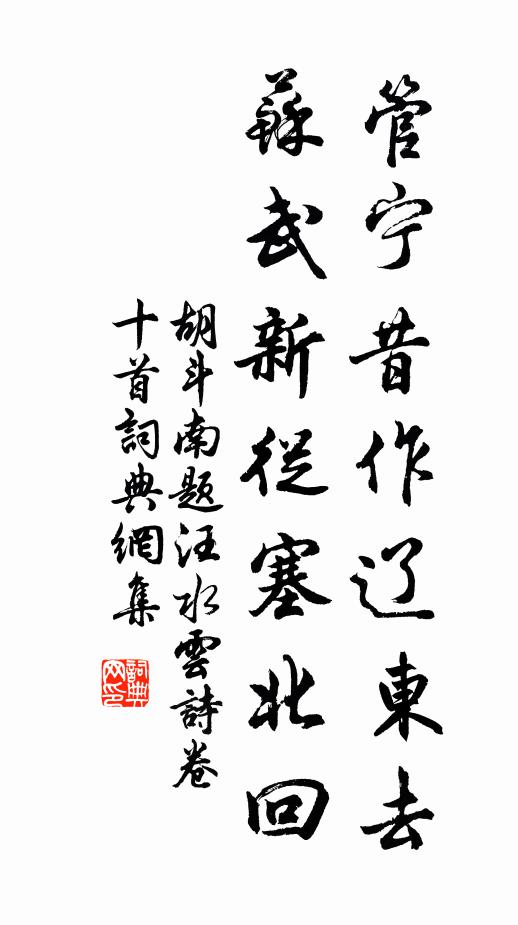 管宁昔作辽東去
蘇武新從塞北回
胡斗南题汪水雲詩卷
十首詞典網集
詞典网印